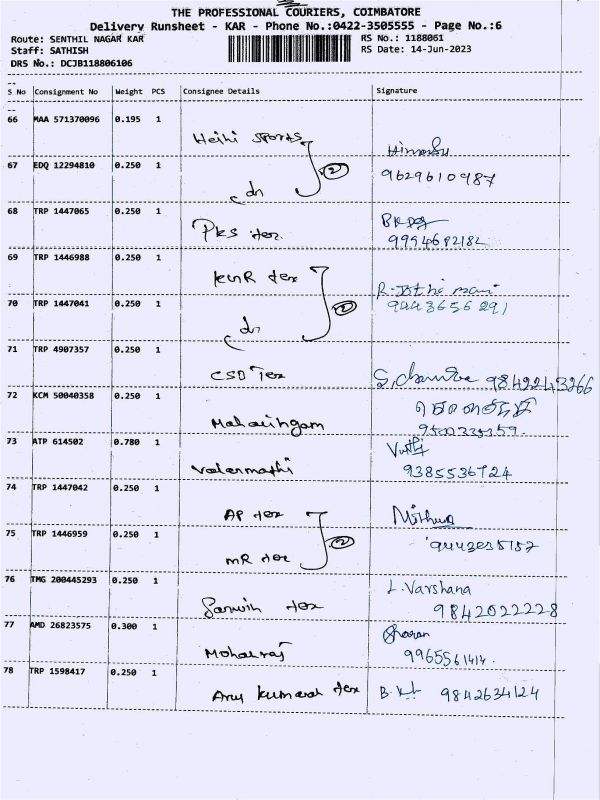 THE PROFESSIONAL COURIERS, COIMBATORE
Delivery Runsheet - KAR - Phone No.:0422-3505555 - Page No.:6
Route: SENTHIL NAGAR KAR
RS No.: 1188061
Staff: SATHISH
RS Date: 14-Jun-2023
DRS No.: DCJB118806106
S No Consignment No Weight PCS Consignee Details Signature
66 MAA 571370096 0.195 1
Heihi sports
Himanshu
67 EDQ 12294810 0.250 1
9629610987
dr 2
68 TRP 1447065 0.250 1
PKS tex
9994682182
69 TRP 1446988 0.250 1
KMR tex
R. Jothi mani
70 TRP 1447041 0.250 1
9443656291
dr 2
71 TRP 4907357 0.250 1
CSD Tex
9842243266
72 KCM 50040358 0.250 1
Mahalingam
73 ATP 614502 0.780 1
Valarmathi
9385536724
74 TRP 1447042 0.250 1
AP tex
Mithun
75 TRP 1446959 0.250 1
MR tex 2
76 TMG 200445293 0.250 1
L. Varshana
tex
9842022228
77 AMD 26823575 0.300 1
Sharan
Mohanraj
9965561414
78 TRP 1598417 0.250 1
Arul kumaran tex
9842634124